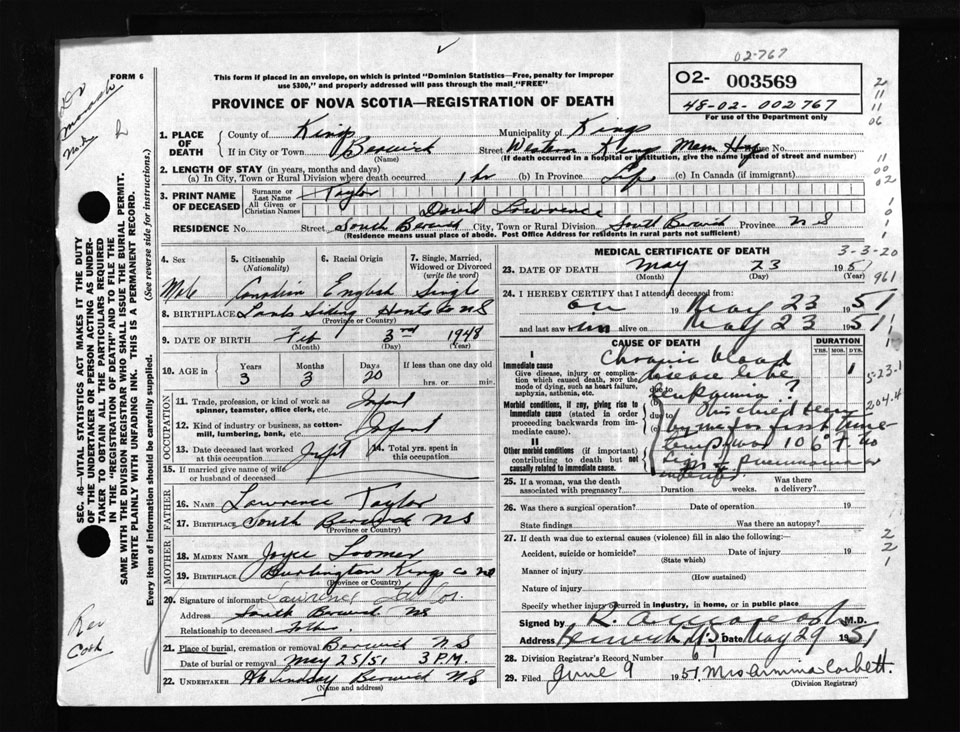 02-767
FORM 6
This form if placed in an envelope, on which is printed "Dominion Statistics—Free, penalty for improper
use $300," and properly addressed will pass through the mail "FREE"
PROVINCE OF NOVA SCOTIA—REGISTRATION OF DEATH
O2- 003569
48-02-002767
For use of the Department only
SEC. 46—VITAL STATISTICS ACT MAKES IT THE DUTY
OF THE UNDERTAKER OR PERSON ACTING AS UNDER-
TAKER TO OBTAIN ALL THE PARTICULARS REQUIRED
IN THE "REGISTRATION OF DEATH" AND TO FILE THE
SAME WITH THE DIVISION REGISTRAR WHO SHALL ISSUE THE BURIAL PERMIT.
WRITE PLAINLY WITH UNFADING INK. THIS IS A PERMANENT RECORD.
Every item of information should be carefully supplied. (See reverse side for instructions.)
1. PLACE OF DEATH
County of Kings Municipality of Kings
If in City or Town Berwick Street Western Kings Mem House No.
(Name) (If death occurred in a hospital or institution, give the name instead of street and number)
2. LENGTH OF STAY (in years, months and days)
(a) In City, Town or Rural Division where death occurred 1 hr (b) In Province Life (c) In Canada (if immigrant)
3. PRINT NAME OF DECEASED
Surname or Last Name Taylor
All Given or Christian Names David Lawrence
RESIDENCE No. Street South Berwick City, Town or Rural Division South Berwick Province N S
(Residence means usual place of abode. Post Office Address for residents in rural parts not sufficient)
4. Sex Male
5. Citizenship (Nationality) Canadian
6. Racial Origin English
7. Single, Married, Widowed or Divorced (write the word) Single
8. BIRTHPLACE Siding Hants Co NS
(Province or Country)
9. DATE OF BIRTH Feb 3rd 1948
(Month) (Day) (Year)
10. AGE in Years 3 Months 3 Days 20 If less than one day old hrs. or min.
OCCUPATION
11. Trade, profession, or kind of work as spinner, teamster, office clerk, etc. Infant
12. Kind of industry or business, as cotton-mill, lumbering, bank, etc. Infant
13. Date deceased last worked at this occupation Infant 14. Total yrs. spent in this occupation
15. If married give name of wife or husband of deceased
FATHER
16. NAME Lawrence Taylor
17. BIRTHPLACE South Berwick NS
(Province or Country)
MOTHER
18. MAIDEN NAME Joyce Loomer
19. BIRTHPLACE Burlington Kings Co NS
(Province or Country)
20. Signature of informant Lawrence Taylor
Address South Berwick NS
Relationship to deceased Father
21. Place of burial, cremation or removal Berwick N S
Date of burial or removal May 25/51 3 P.M.
22. UNDERTAKER Lindsay Berwick NS
(Name and address)
MEDICAL CERTIFICATE OF DEATH
3-3-20
961
23. DATE OF DEATH May 23 1951
(Month) (Day) (Year)
24. I HEREBY CERTIFY that I attended deceased from:
on May 23 1951
and last saw him alive on May 23 1951
CAUSE OF DEATH DURATION
YRS. MOS. DYS.
I
Immediate cause
Give disease, injury or complication which caused death, NOT the mode of dying, such as heart failure, asphyxia, asthenia, etc.
Chronic blood
disease like
due to leukemia?
1
5-23-1
204.4
Morbid conditions, if any, giving rise to immediate cause (stated in order proceeding backwards from immediate cause).
due to This child seen
by me for first time
temp was 106°F. no
II
Other morbid conditions (if important) contributing to death but not causally related to immediate cause.
signs of pneumonia or
25. If a woman, was the death associated with pregnancy? Duration weeks. Was there a delivery?
26. Was there a surgical operation? Date of operation 19
State findings Was there an autopsy?
27. If death was due to external causes (violence) fill in also the following:
Accident, suicide or homicide? Date of injury 19
(State which)
Manner of injury
(How sustained)
Nature of injury
Specify whether injury occurred in industry, in home, or in public place
Signed by M.D.
Address Berwick N.S. Date May 29 1951
28. Division Registrar's Record Number 67
29. Filed June 9 1951. Mrs Armina Corbett.
(Division Registrar)
Rev
Cook